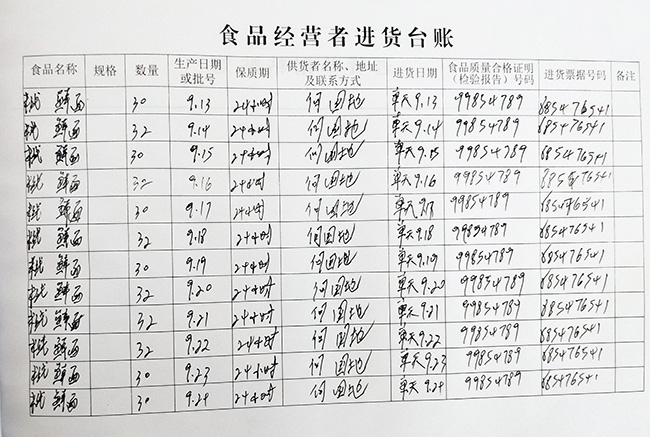 食品经营者进货台账
食品名称 规格 数量 生产日期或批号 保质期 供货者名称、地址及联系方式 进货日期 食品质量合格证明(检验报告)号码 进货票据号码 备注
鲜面 30 9.13 24小时 何国地 9.13 99854789 685476541
鲜面 32 9.14 24小时 何国地 9.14 99854789 685476541
鲜面 30 9.15 24小时 何国地 9.15 99854789 685476541
鲜面 32 9.16 24小时 何国地 9.16 99854789 685476541
鲜面 30 9.17 24小时 何国地 99854789 685476541
鲜面 32 9.18 24小时 何国地 9.18 99854789 685476541
鲜面 30 9.19 24小时 何国地 9.19 99854789 685476541
鲜面 32 9.20 24小时 何国地 9.20 99854789 685476541
鲜面 32 9.21 24小时 何国地 9.21 99854789 685476541
鲜面 32 9.22 24小时 何国地 9.22 99854789 685476541
鲜面 30 9.23 24小时 何国地 9.23 99854789 685476541
鲜面 30 9.24 24小时 何国地 9.24 99854789 685476541